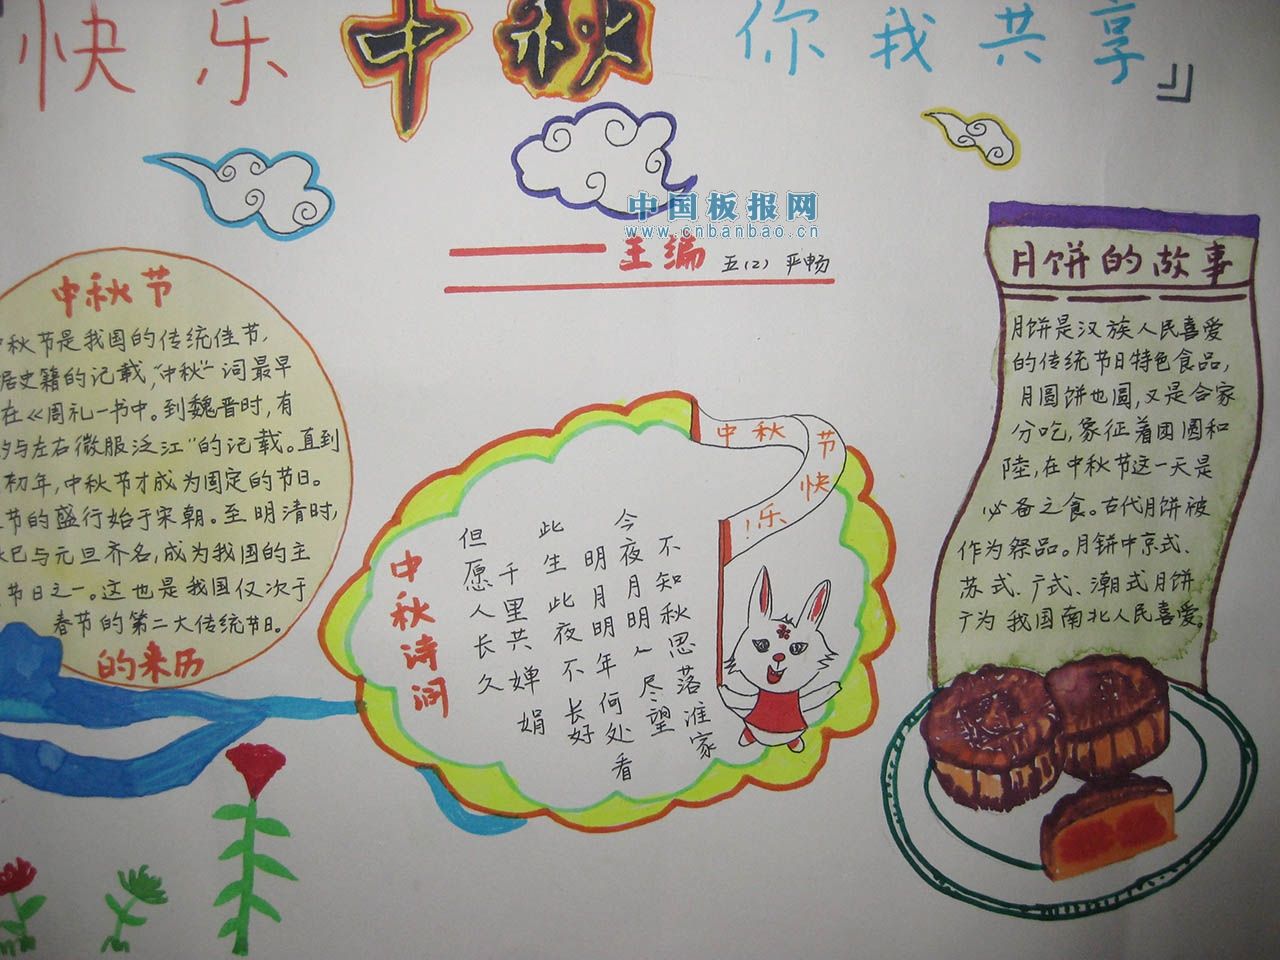 快乐中秋 你我共享』
中国板报网
www.cnbanbao.cn
主编 五(2) 严畅
中秋节
秋节是我国的传统佳节,
居史籍的记载,“中秋”一词最早
在《周礼一书中。到魏晋时,有
与左右微服泛江”的记载。直到
初年,中秋节才成为固定的节日。
节的盛行始于宋朝。至明清时,
已与元旦齐名,成为我国的主
节日之一。这也是我国仅次于
春节的第二大传统节日。
的来历
中秋诗词
不知秋思落谁家
今夜月明人尽望
明月明年何处看
此生此夜不长好
千里共婵娟
但愿人长久
中秋节快乐!
月饼的故事
月饼是汉族人民喜爱
的传统节日特色食品,
月圆饼也圆,又是合家
分吃,象征着团圆和
陸,在中秋节这一天是
必备之食。古代月饼被
作为祭品。月饼中京式、
苏式、广式、潮式月饼
广为我国南北人民喜爱。